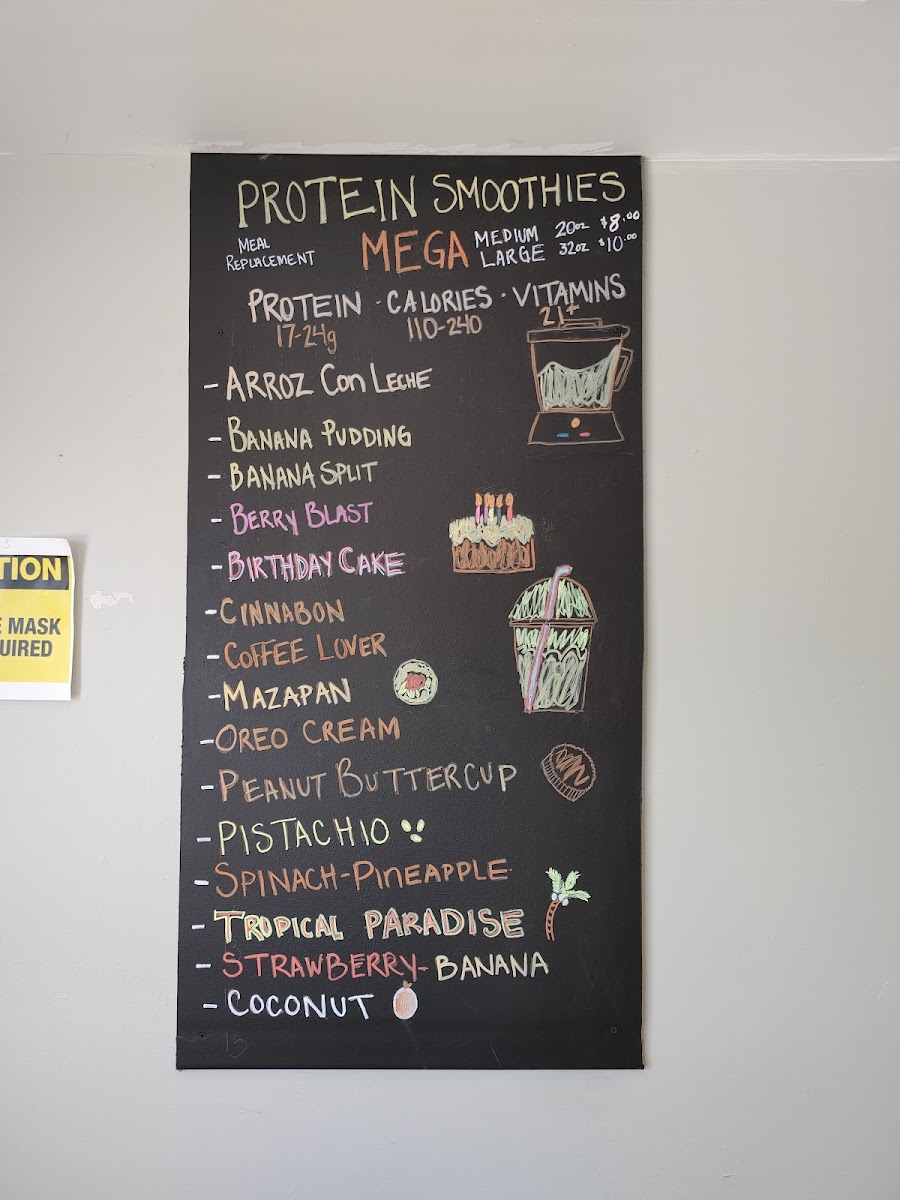 PROTEIN SMOOTHIES
MEAL REPLACEMENT
MEGA
MEDIUM 20oz $8.00
LARGE 32oz $10.00
PROTEIN · CALORIES · VITAMINS
17-24g 110-240 21+
- ARROZ CON LECHE
- BANANA PUDDING
- BANANA SPLIT
- BERRY BLAST
- BIRTHDAY CAKE
- CINNABON
- COFFEE LOVER
- MAZAPAN
- OREO CREAM
- PEANUT BUTTERCUP
- PISTACHIO
- SPINACH-PINEAPPLE
- TROPICAL PARADISE
- STRAWBERRY-BANANA
- COCONUT
15
TION
E MASK
UIRED